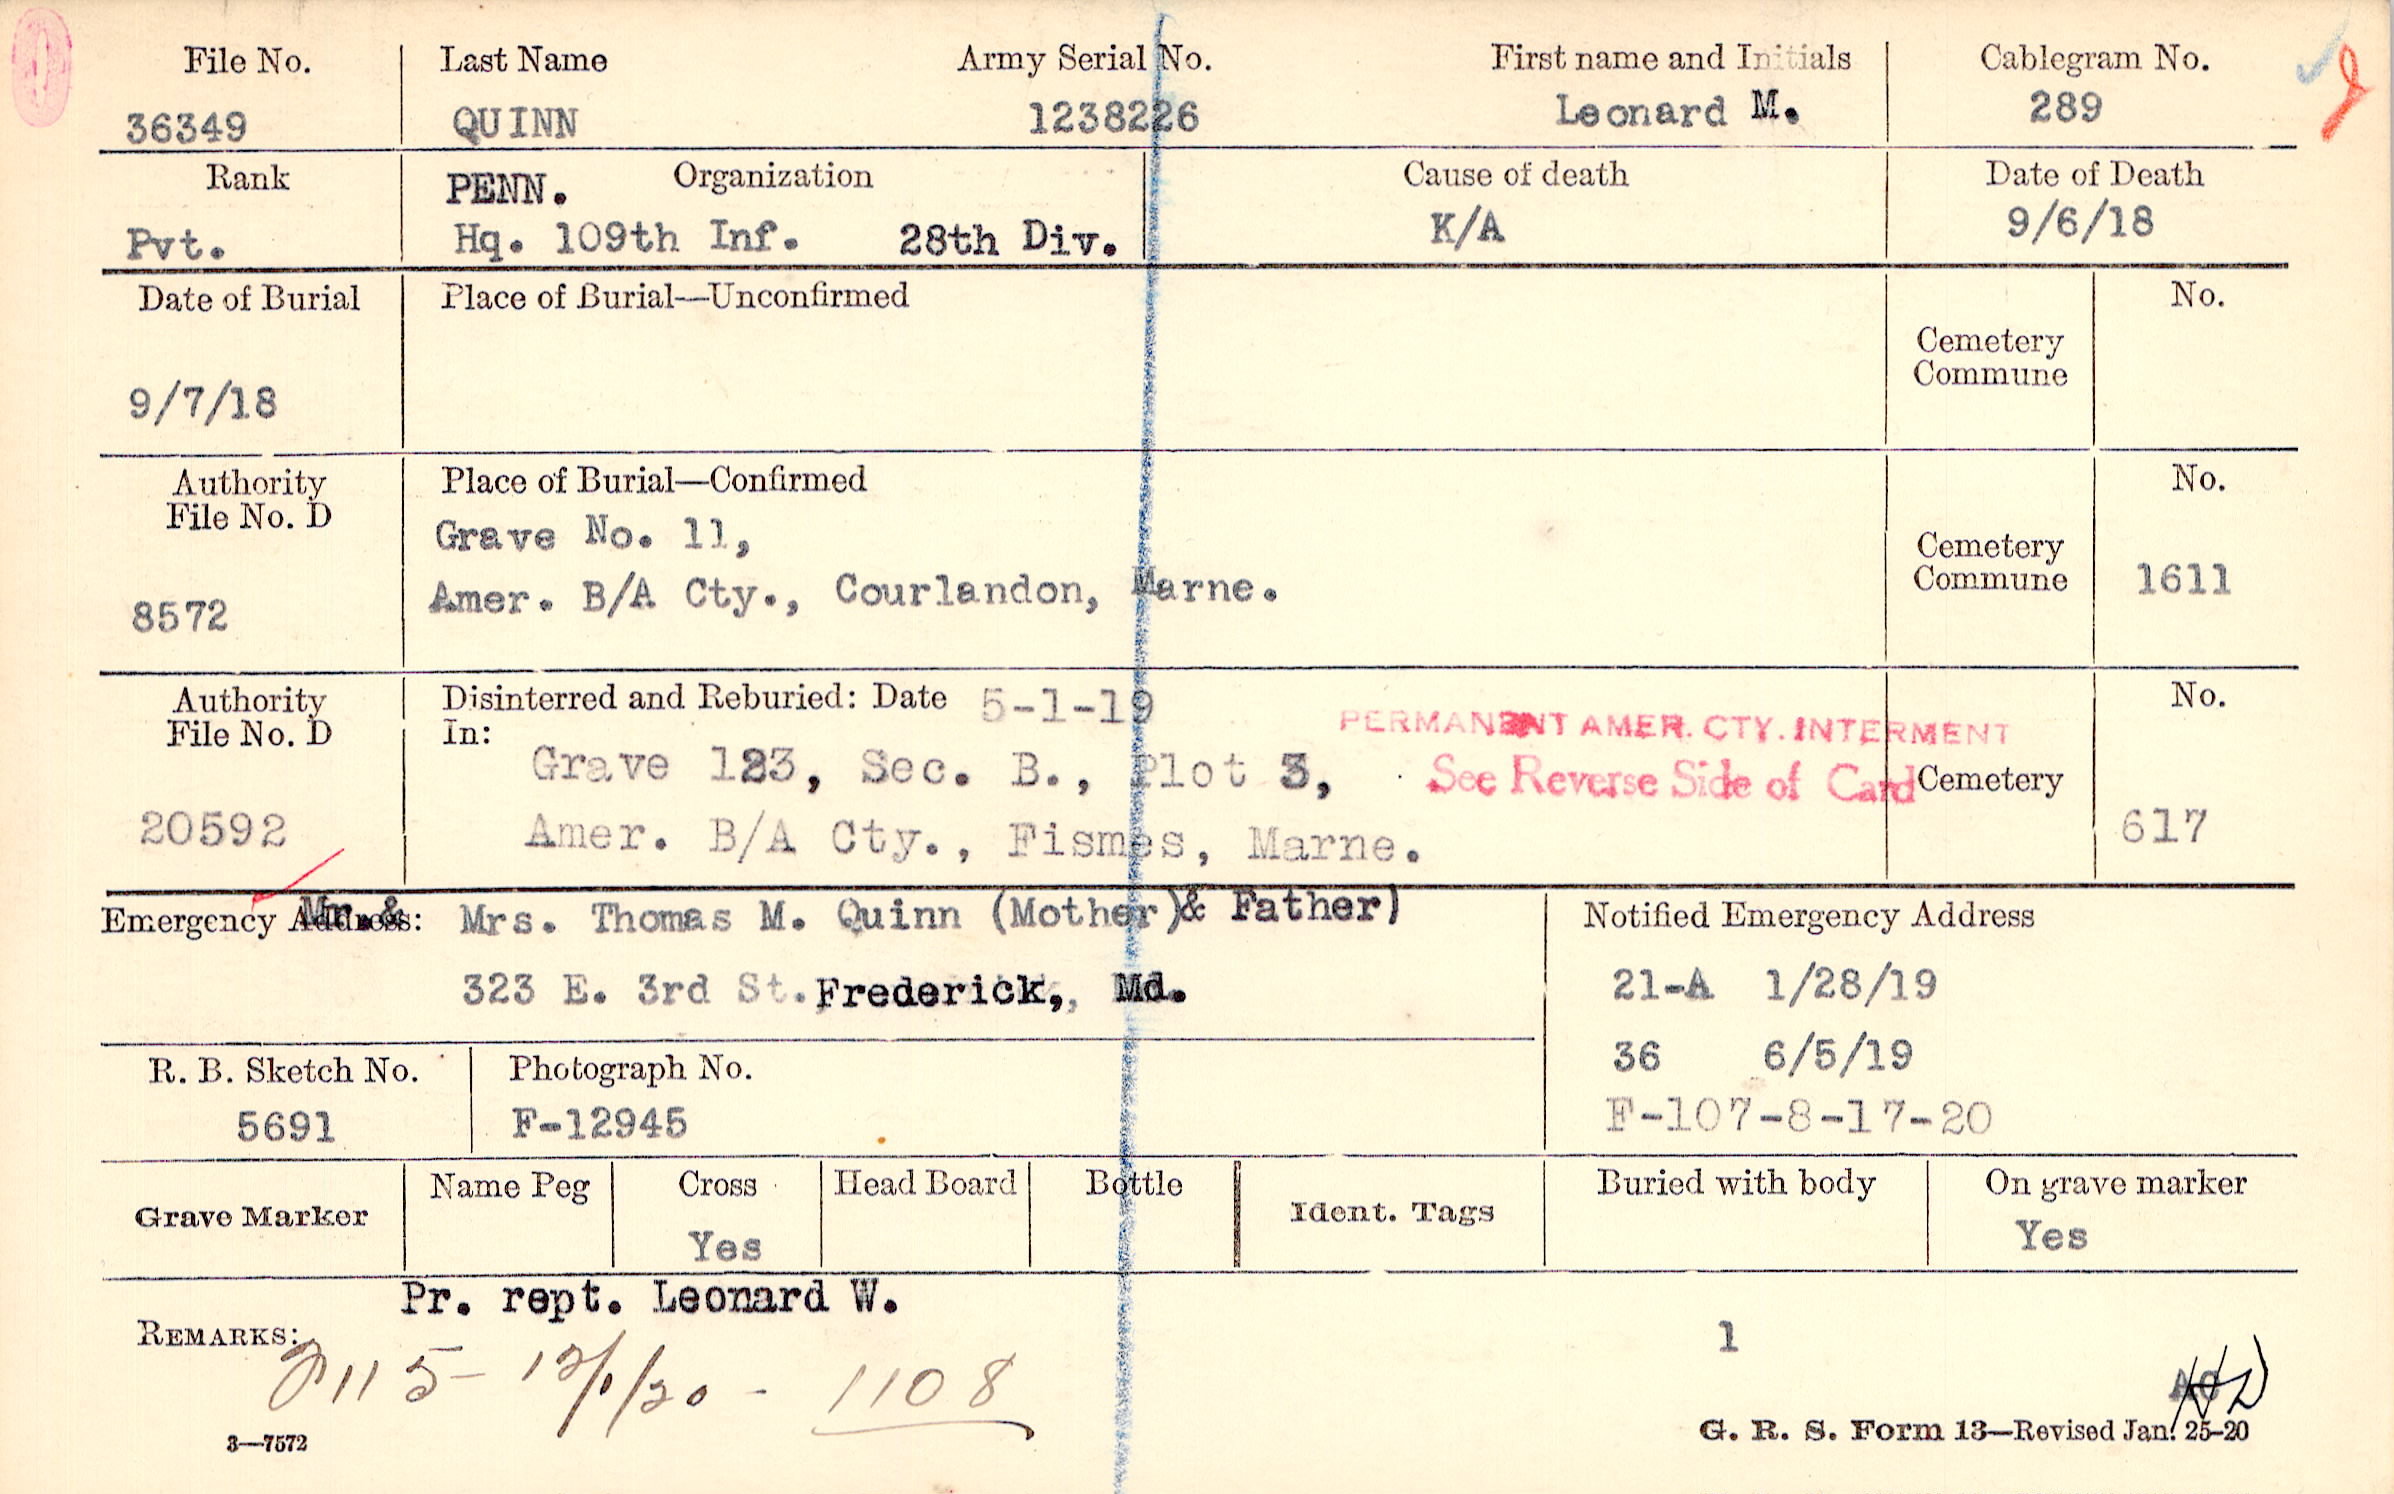 File No. Last Name Army Serial No. First name and Initials Cablegram No.
36349 QUINN 1238226 Leonard M. 289
Rank PENN. Organization Cause of death Date of Death
Pvt. Hq. 109th Inf. 28th Div. K/A 9/6/18
Date of Burial Place of Burial—Unconfirmed No.
Cemetery
Commune
9/7/18
Authority Place of Burial—Confirmed No.
File No. D
Grave No. 11,
Cemetery
Commune 1611
8572 Amer. B/A Cty., Courlandon, Marne.
Authority Disinterred and Reburied: Date 5-1-19 No.
File No. D In:
PERMANENT AMER. CTY. INTERMENT
Grave 123, Sec. B., Plot 3, See Reverse Side of Card Cemetery
20592 Amer. B/A Cty., Fismes, Marne. 617
Emergency Address: Mr. & Mrs. Thomas M. Quinn (Mother) & Father) Notified Emergency Address
323 E. 3rd St. Frederick, Md. 21-A 1/28/19
36 6/5/19
R. B. Sketch No. Photograph No.
5691 F-12945 F-107-8-17-20
Grave Marker Name Peg Cross Head Board Bottle Ident. Tags Buried with body On grave marker
Yes Yes
Pr. rept. Leonard W.
REMARKS: 1
115- 12/1/20 - 1108
3—7572 G. R. S. Form 13—Revised Jan. 25-20